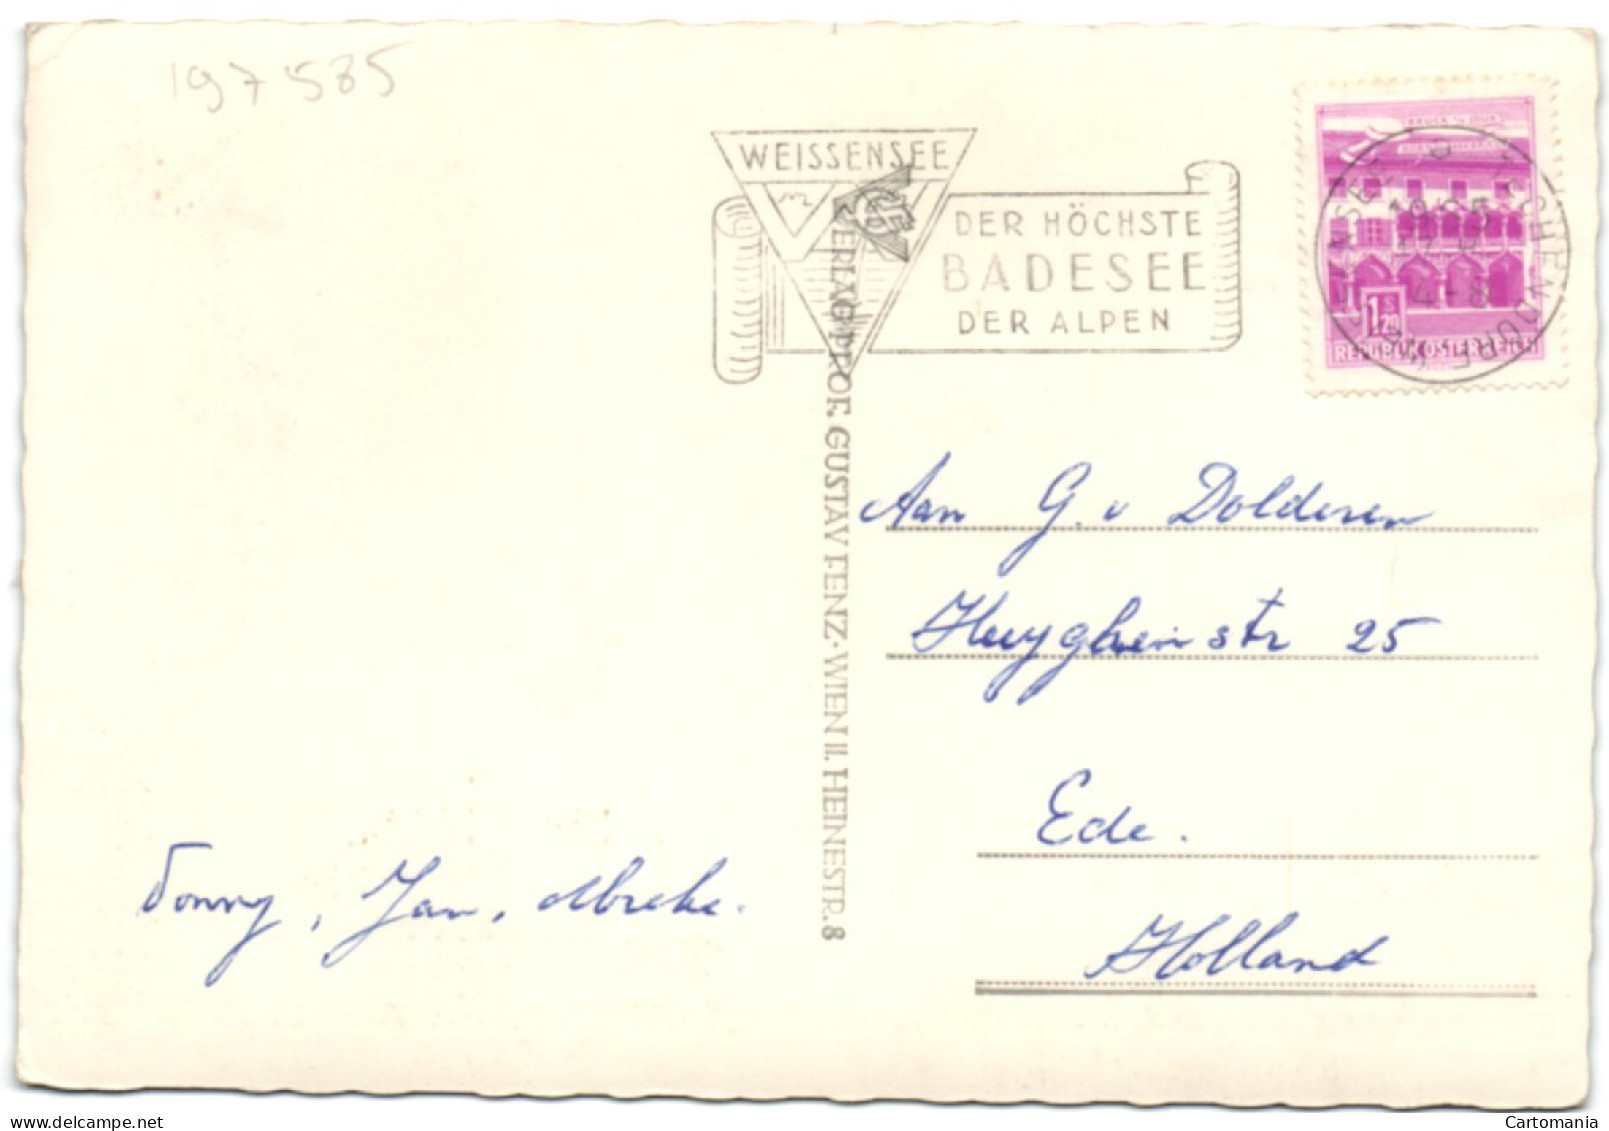 197585
WEISSENSEE
DER HÖCHSTE
BADESEE
DER ALPEN
1 S 20
REPUBLIK ÖSTERREICH
VERLAG PROF. GUSTAV FENZ · WIEN II. HEINESTR. 8
Aan G. v Dolderen
Huyghenstr 25
Ede.
Holland
Jan,
delcampe.net
Cartomania